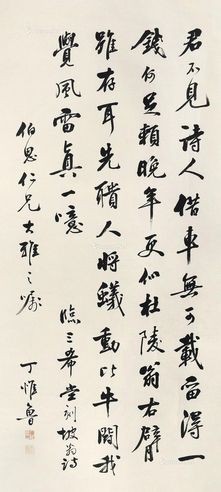 君不見詩人借車無可載留得一
錢何足賴晚年更似杜陵翁右臂
雖存耳先聵人將蟻動作牛鬭我
覺風雷真一噫 臨三希堂刻坡翁詩
伯思仁兄大雅之屬
丁惟魯